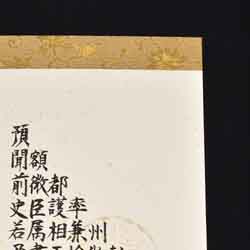 預
開額
前徹都
史臣護率
若属相兼州